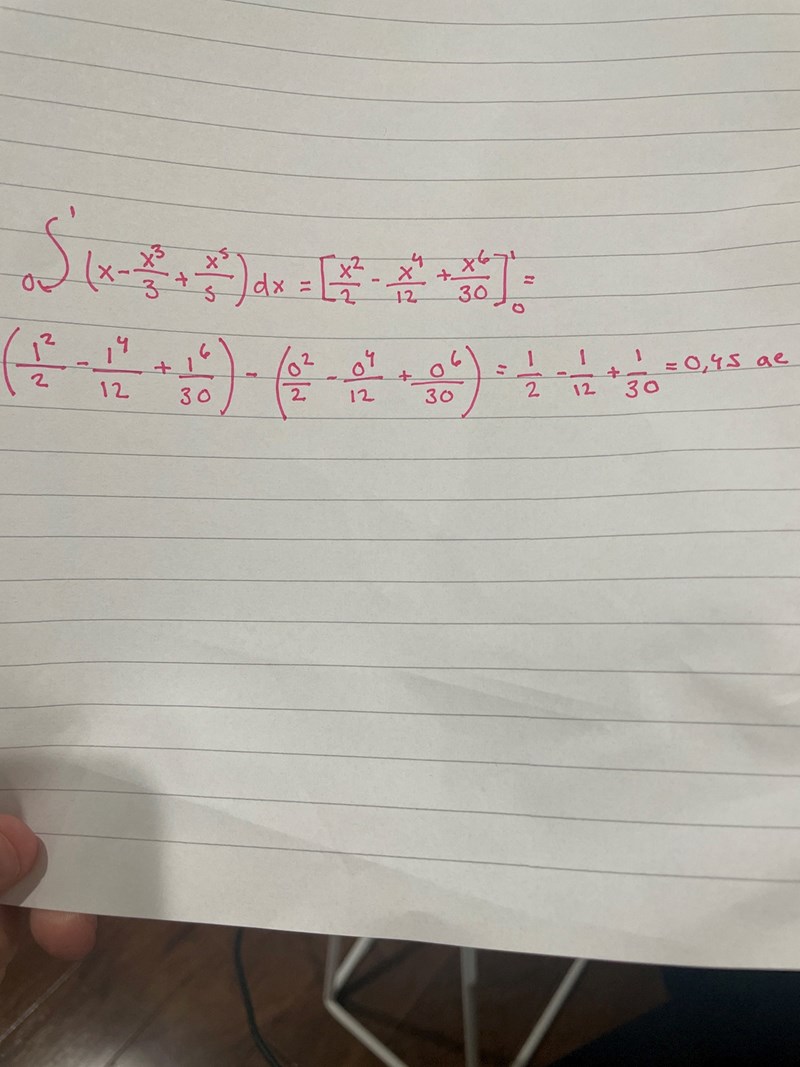 ∫₀¹ (x - x³/3 + x⁵/5) dx = [x²/2 - x⁴/12 + x⁶/30]₀¹ =
(1²/2 - 1⁴/12 + 1⁶/30) - (0²/2 - 0⁴/12 + 0⁶/30) = 1/2 - 1/12 + 1/30 = 0,45 ae